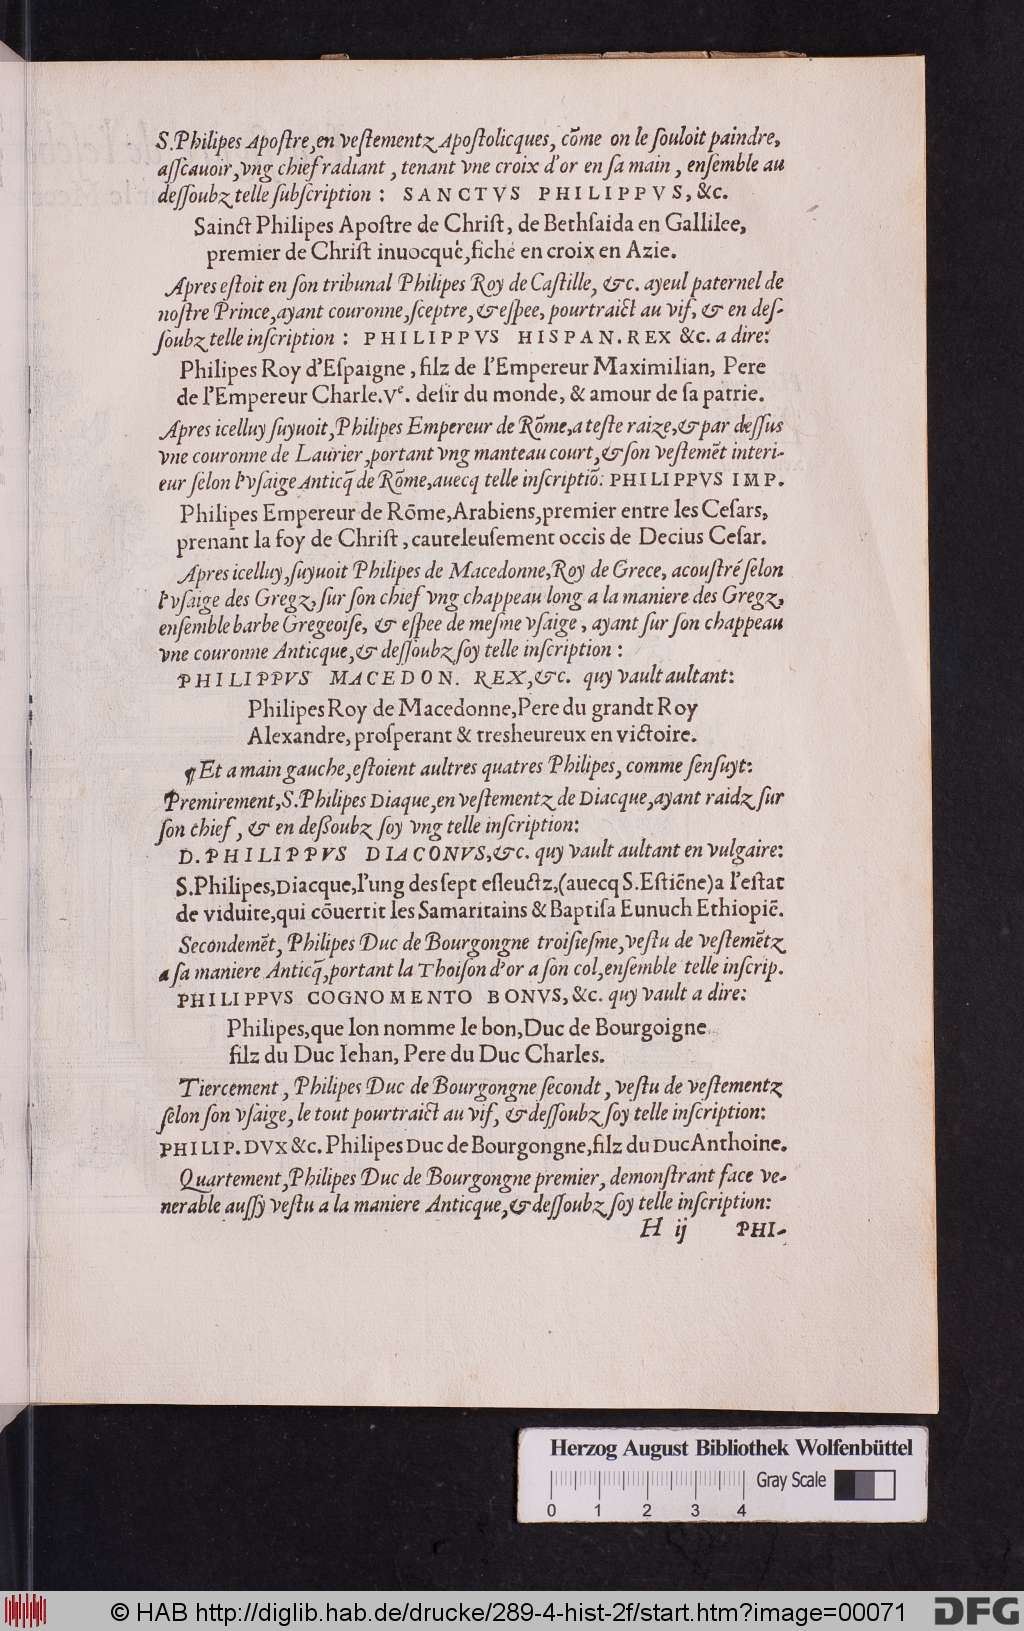 S.Philipes Apoſtre,en veſtementz Apoſtolicques, cōme on le ſouloit paindre,
aſſcauoir,vng chief radiant, tenant vne croix d'or en ſa main, enſemble au
deſſoubz telle ſubſcription: SANCTVS PHILIPPVS, &c.
Sainct Philipes Apoſtre de Chriſt, de Bethſaida en Gallilee,
premier de Chriſt inuocqué, fiché en croix en Azie.
Apres eſtoit en ſon tribunal Philipes Roy de Caſtille, &c. ayeul paternel de
noſtre Prince,ayant couronne,ſceptre, & eſpee, pourtraict au vif, & en deſ-
ſoubz telle inſcription: PHILIPPVS HISPAN. REX &c. a dire:
Philipes Roy d'Eſpaigne, filz de l'Empereur Maximilian, Pere
de l'Empereur Charle.Vᵉ. deſir du monde, & amour de ſa patrie.
Apres icelluy ſuyuoit,Philipes Empereur de Rōme,a teſte raize,& par deſſus
vne couronne de Laurier,portant vng manteau court,& ſon veſtemēt interi-
eur ſelon l'vſaige Anticq̄ de Rōme,auecq telle inſcriptiō: PHILIPPVS IMP.
Philipes Empereur de Rōme, Arabiens, premier entre les Ceſars,
prenānt la foy de Chriſt, cauteleuſement occis de Decius Ceſar.
Apres icelluy,ſuyuoit Philipes de Macedonne,Roy de Grece, acouſtré ſelon
l'vſaige des Gregz, ſur ſon chief vng chappeau long a la maniere des Gregz,
enſemble barbe Gregeoiſe, & eſpee de meſme vſaige, ayant ſur ſon chappeau
vne couronne Anticque,& deſſoubz ſoy telle inſcription:
PHILIPPVS MACEDON. REX,&c. quy vault aultant:
Philipes Roy de Macedonne, Pere du grandt Roy
Alexandre, proſperant & tresheureux en victoire.
¶ Et a main gauche, eſtoient aultres quatres Philipes, comme ſenſuyt:
Premirement,S.Philipes Diaque,en veſtementz de Diacque,ayant raidz ſur
ſon chief, & en deßoubz ſoy vng telle inſcription:
D.PHILIPPVS DIACONVS,&c. quy vault aultant en vulgaire:
S.Philipes, Diacque, l'ung des ſept eſleuctz, (auecq S. Eſtiēne) a l'eſtat
de viduite, qui cōuertit les Samaritains & Baptiſa Eunuch Ethiopiē.
Secondemēt, Philipes Duc de Bourgongne troiſieſme,veſtu de veſtemētz
a ſa maniere Anticq̄,portant la Thoiſon d'or a ſon col,enſemble telle inſcrip.
PHILIPPVS COGNOMENTO BONVS, &c. quy vault a dire:
Philipes, que lon nomme le bon, Duc de Bourgoigne
filz du Duc Iehan, Pere du Duc Charles.
Tiercement, Philipes Duc de Bourgongne ſecondt, veſtu de veſtementz
ſelon ſon vſaige, le tout pourtraict au vif, & deſſoubz ſoy telle inſcription:
PHILIP. DVX &c. Philipes Duc de Bourgongne, filz du Duc Anthoine.
Quartement,Philipes Duc de Bourgongne premier, demonſtrant face ve-
nerable auſſy veſtu a la maniere Anticque,& deſſoubz ſoy telle inſcription:
H ij PHI-
Herzog August Bibliothek Wolfenbüttel
Gray Scale
0 1 2 3 4
© HAB http://diglib.hab.de/drucke/289-4-hist-2f/start.htm?image=00071 DFG